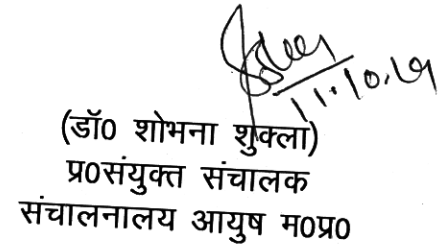 11.10.19
(डॉ0 शोभना शुक्ला)
प्र0संयुक्त संचालक
संचालनालय आयुष म0प्र0